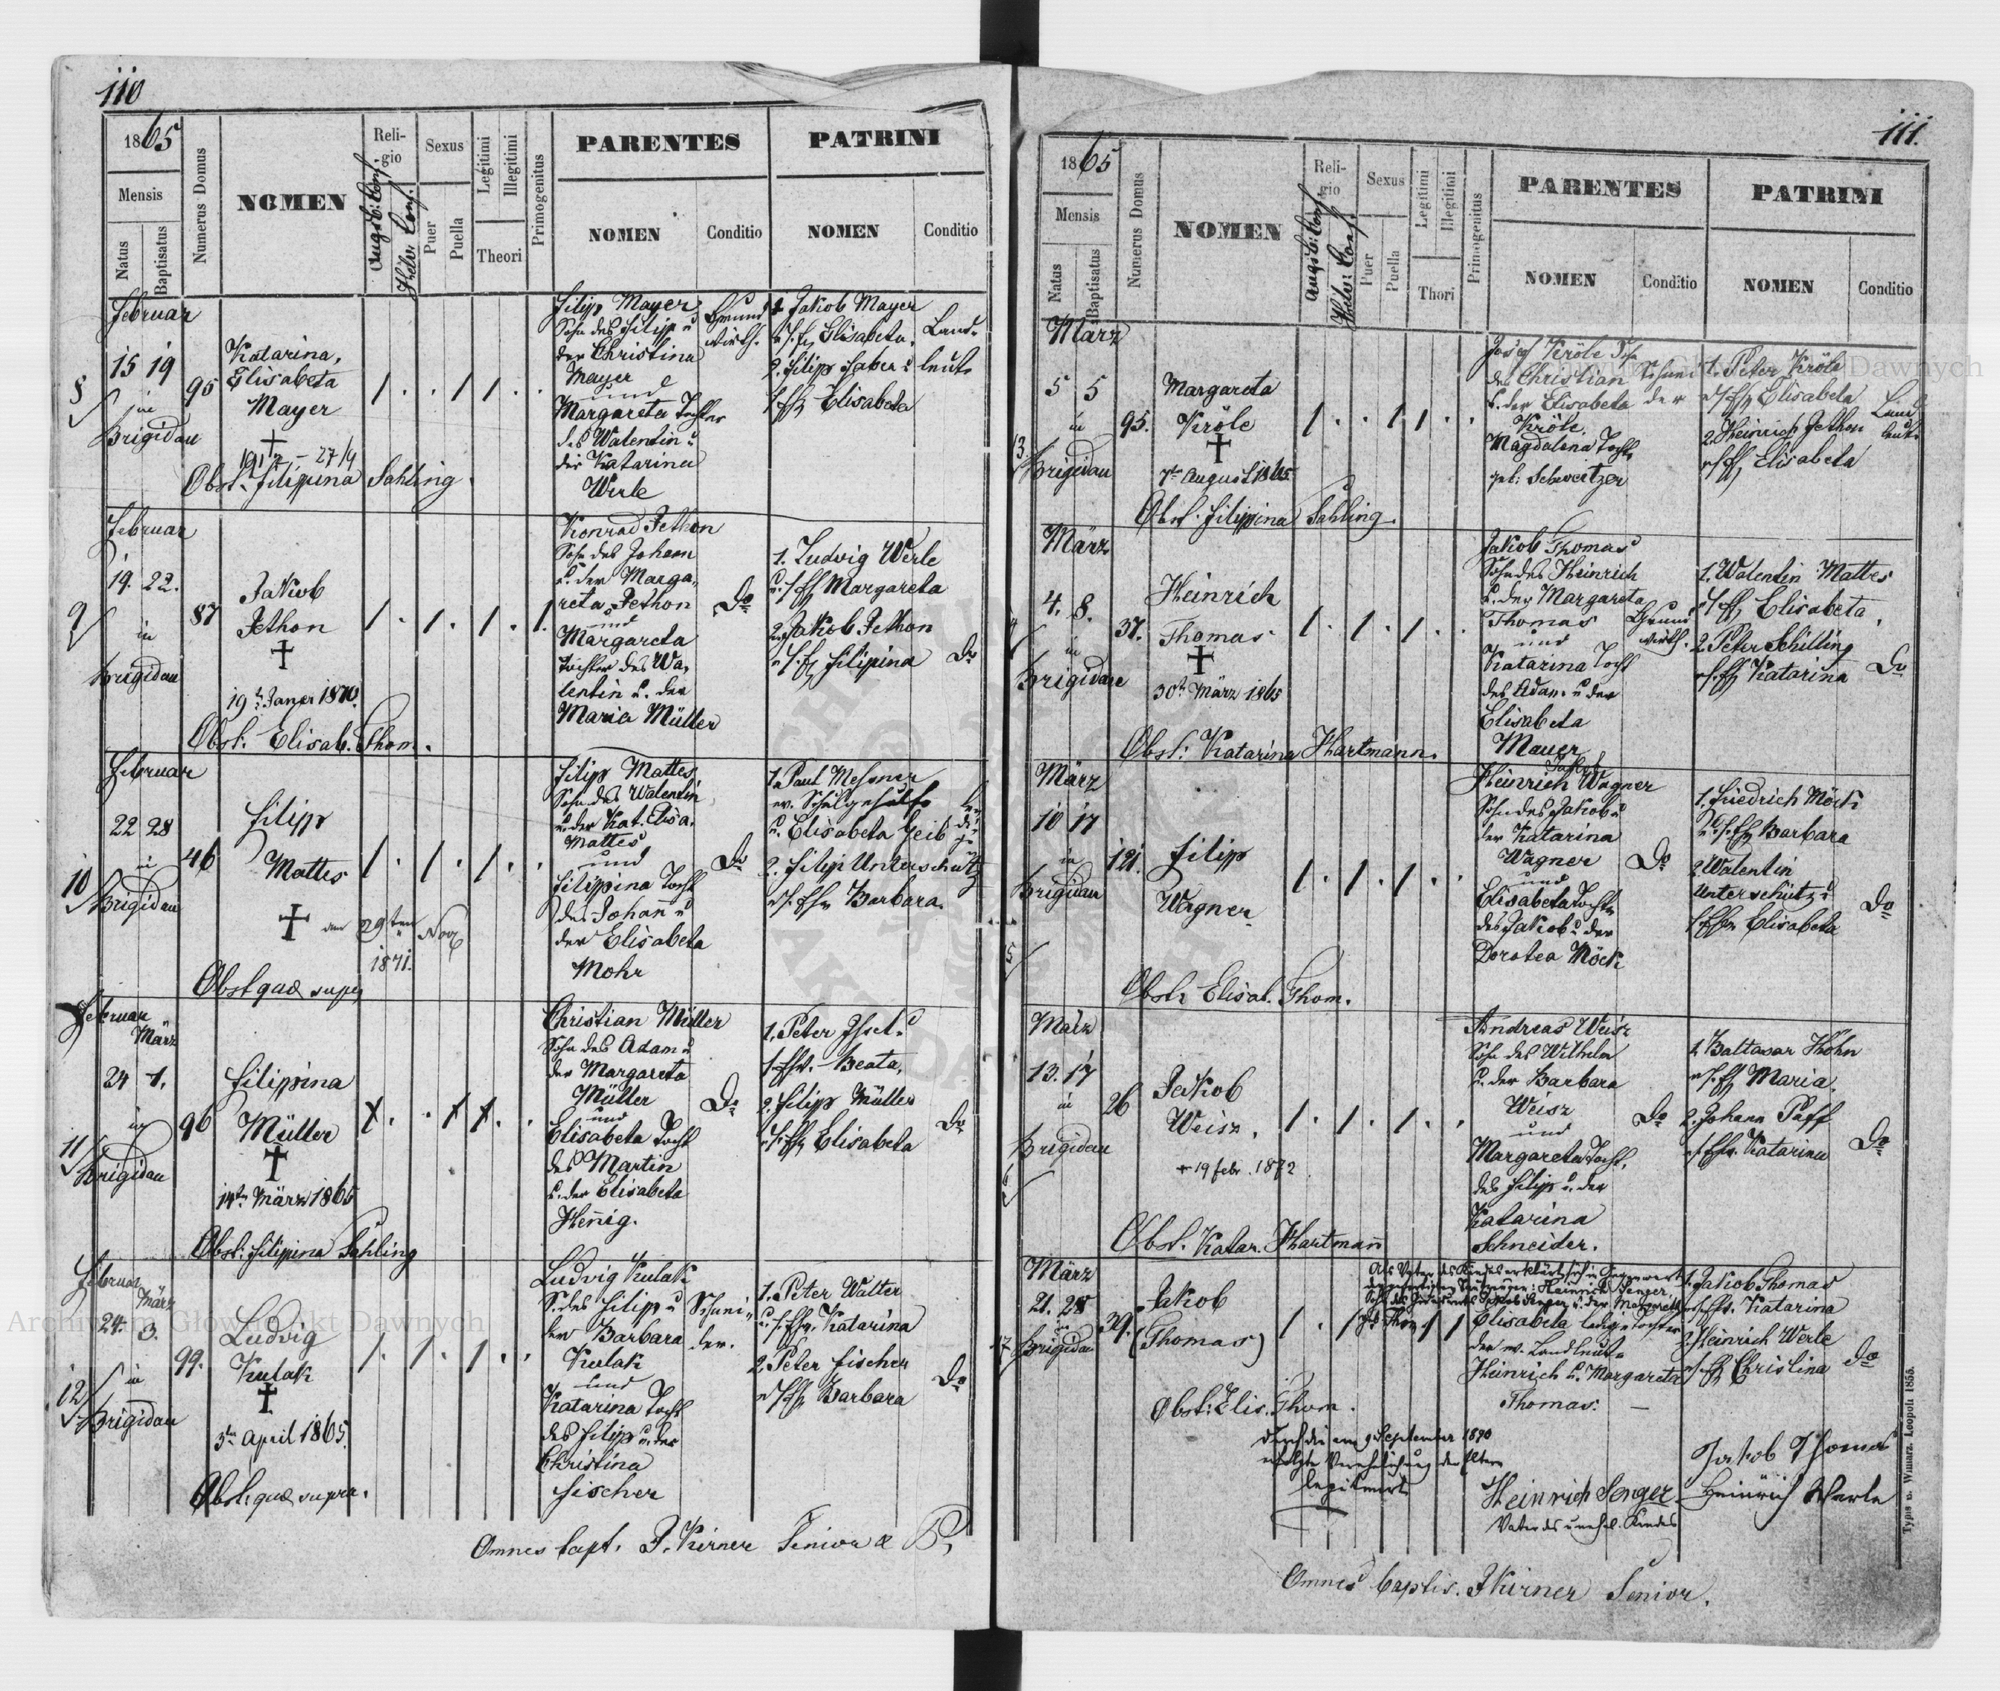 110
1865
Mensis
Natus
Baptisatus
Numerus Domus
NOMEN
Religio
Augsb: Conf.
Helv: Conf.
Sexus
Puer
Puella
Legitimi
Illegitimi
Theori
Primogenitus
PARENTES
NOMEN
Conditio
PATRINI
NOMEN
Conditio
8
Februar
15 19
in
Brigidau
95
Katarina,
Elisabeta
Mayer
Obst. Filipina Sahling
Filip Mayer
Sohn des Filip u
der Christina
Mayer
und
Margareta Tochter
des Walentin u
der Katarina
Werle
Grund
wirth.
1. Jakob Mayer
Elisabeta.
2. Filip Faber u
Elisabeta
Land-
leute
9
Februar
19. 22.
in
Brigidau
87
Jakob
Jethon
19t Janer 1870.
Obst. Elisab. Thom.
Konrad Jethon
Sohn des Johann
u. der Marga-
reta Jethon
und
Margareta
Tochter des Wa-
lentin u. der
Maria Müller
Do
1. Ludwig Werle
Margareta
2. Jakob Jethon
Filipina
Do
10
Februar
22 28
in
Brigidau
46
Filipp
Mattes
den 29ten Nov
1871.
Obst quae supra
Filip Mattes
Sohn des Walentin
u. der Kat. Elisa.
Mattes
und
Filippina Tocht
des Johann u
der Elisabeta
Mohr
Do
1. Paul Messner
ev. Schulgehülfe
u. Elisabeta Geib
2. Filip Unterschütz
Barbara.
11
Februar
März
24 1.
in
Brigidau
96
Filippina
Müller
14ten März 1865
Obst: Filipina Sahling
Christian Müller
Sohn des Adam u
der Margareta
Müller
und
Elisabeta Tocht
des Martin
u. der Elisabeta
Hennig.
Do
1. Peter
Beata.
2. Filip Müller
Elisabeta
Do
12
Februar
März
24. 3.
in
Brigidau
99.
Ludvig
Kulak
3ten April 1865.
Obst: quae supra.
Ludvig Kulak
S. des Filip u
der Barbara
Kulak
und
Katarina Tocht
des Filip u. der
Christina
Fischer
Schnei-
der.
1. Peter Walter
Katarina
2. Peter Fischer
Barbara
Do
Omnes bapt. J. Kirner Senior
111.
1865
Mensis
Natus
Baptisatus
Numerus Domus
NOMEN
Religio
Augsb: Conf.
Helv: Conf.
Sexus
Puer
Puella
Legitimi
Illegitimi
Thori
Primogenitus
PARENTES
NOMEN
Conditio
PATRINI
NOMEN
Conditio
13
März
5 5
in
Brigidau
95.
Margareta
Kröle
7ten August 1865.
Obst. Filippina Sahling.
Josef Kröle Sohn
des Christian
u. der Elisabeta
Kröle
Magdalena Tocht
geb: Schweitzer
1. Peter Kröle
Elisabeta
2. Heinrich Jethon
Elisabeta
Land
leute
März
4. 8.
in
Brigidau
37.
Heinrich
Thomas
30ten März 1865
Obst: Katarina Hartmann.
Jakob Thomas
Sohn des Heinrich
u. der Margareta
Thomas
und
Katarina Tocht
des Adam u der
Elisabeta
Mauer
Grund
wirth.
1. Walentin Mattes
Elisabeta,
2. Peter Schilling
Katarina
Do
15
März
10 17
in
Brigidau
121.
Filip
Wagner
Obst: Elisab. Thom.
Heinrich Wagner
Sohn des Jakob u
der Katarina
Wagner
und
Elisabeta Tochter
des Jakob u der
Dorotea Möck
Do
1. Friedrich Möck
Barbara
2 Walentin
Unterschütz u
Elisabeta
Do
März
13. 17
in
Brigidau
26
Jakob
Weisz.
+ 19 Febr. 1872
Obst. Katar. Hartmann
Andreas Weisz
Sohn des Wilhelm
u. der Barbara
Weisz
und
Margareta Tocht.
des Filip u. der
Katarina
Schneider.
Do
1. Baltasar Höhn
Maria.
2. Johann Paff
Katarina
Do
17
März
21. 28
in
Brigidau
39.
Jakob
(Thomas)
Obst: Elis. Thom.
Als Vater des Kindes erklärt sich in Gegenwart
der gefertigten Taufzeugen: Heinrich Senger,
Elisabeta
der ev. Landleute
Heinrich u. Margareta
Thomas.
1. Jakob Thomas
Katarina
2. Heinrich Werle
Christina
Do
Durch die am 9 September 1870
erfolgte Verehelichung der Eltern
legitimirt
Heinrich Senger
Vater des unehel. Kindes
Jakob Thomas
Heinrich Werle
Omnes baptis. J Kirner Senior.
Typis v. Winiarz. Leopoli 1855.
Archiwum Główne Akt Dawnych